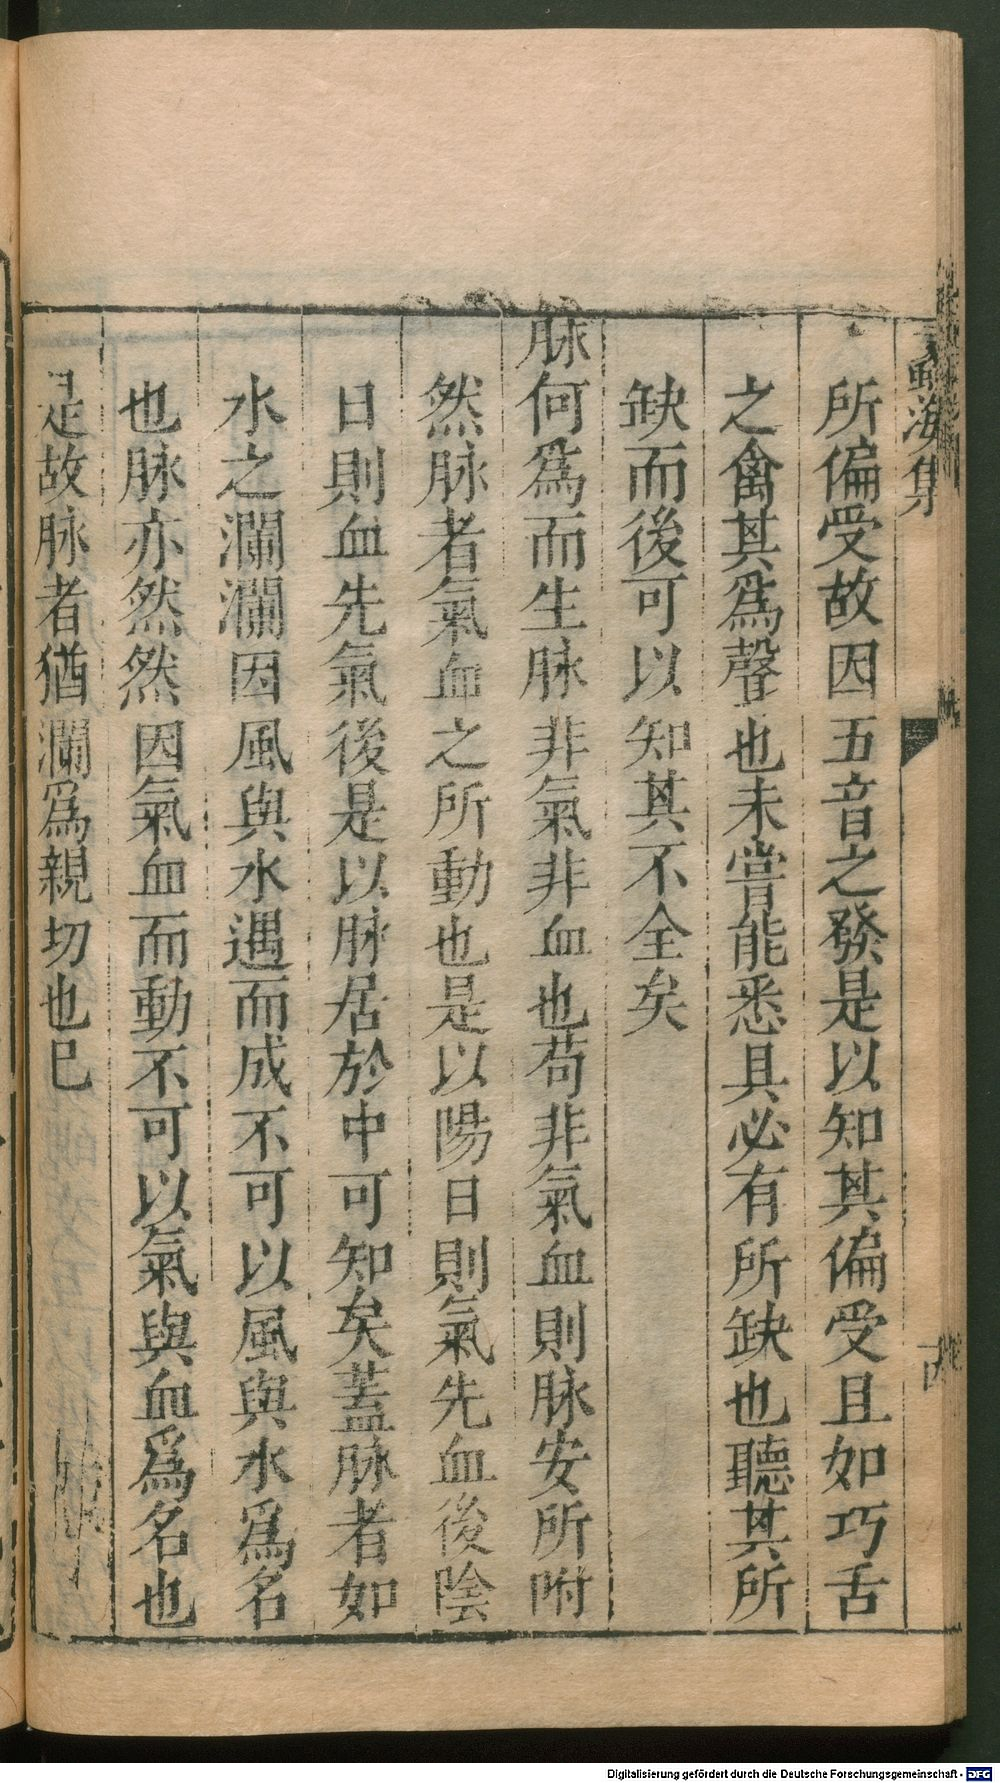 蠡海集
所偏受故因五音之發是以知其偏受且如巧舌
之禽其爲聲也未嘗能悉具必有所缺也聽其所
缺而後可以知其不全矣
脉何爲而生脉非氣非血也苟非氣血則脉安所附
然脉者氣血之所動也是以陽日則氣先血後陰
日則血先氣後是以脉居於中可知矣蓋脉者如
水之瀾瀾因風與水遇而成不可以風與水爲名
也脉亦然然因氣血而動不可以氣與血爲名也
是故脉者猶瀾爲親切也已
Digitalisierung gefördert durch die Deutsche Forschungsgemeinschaft - DFG